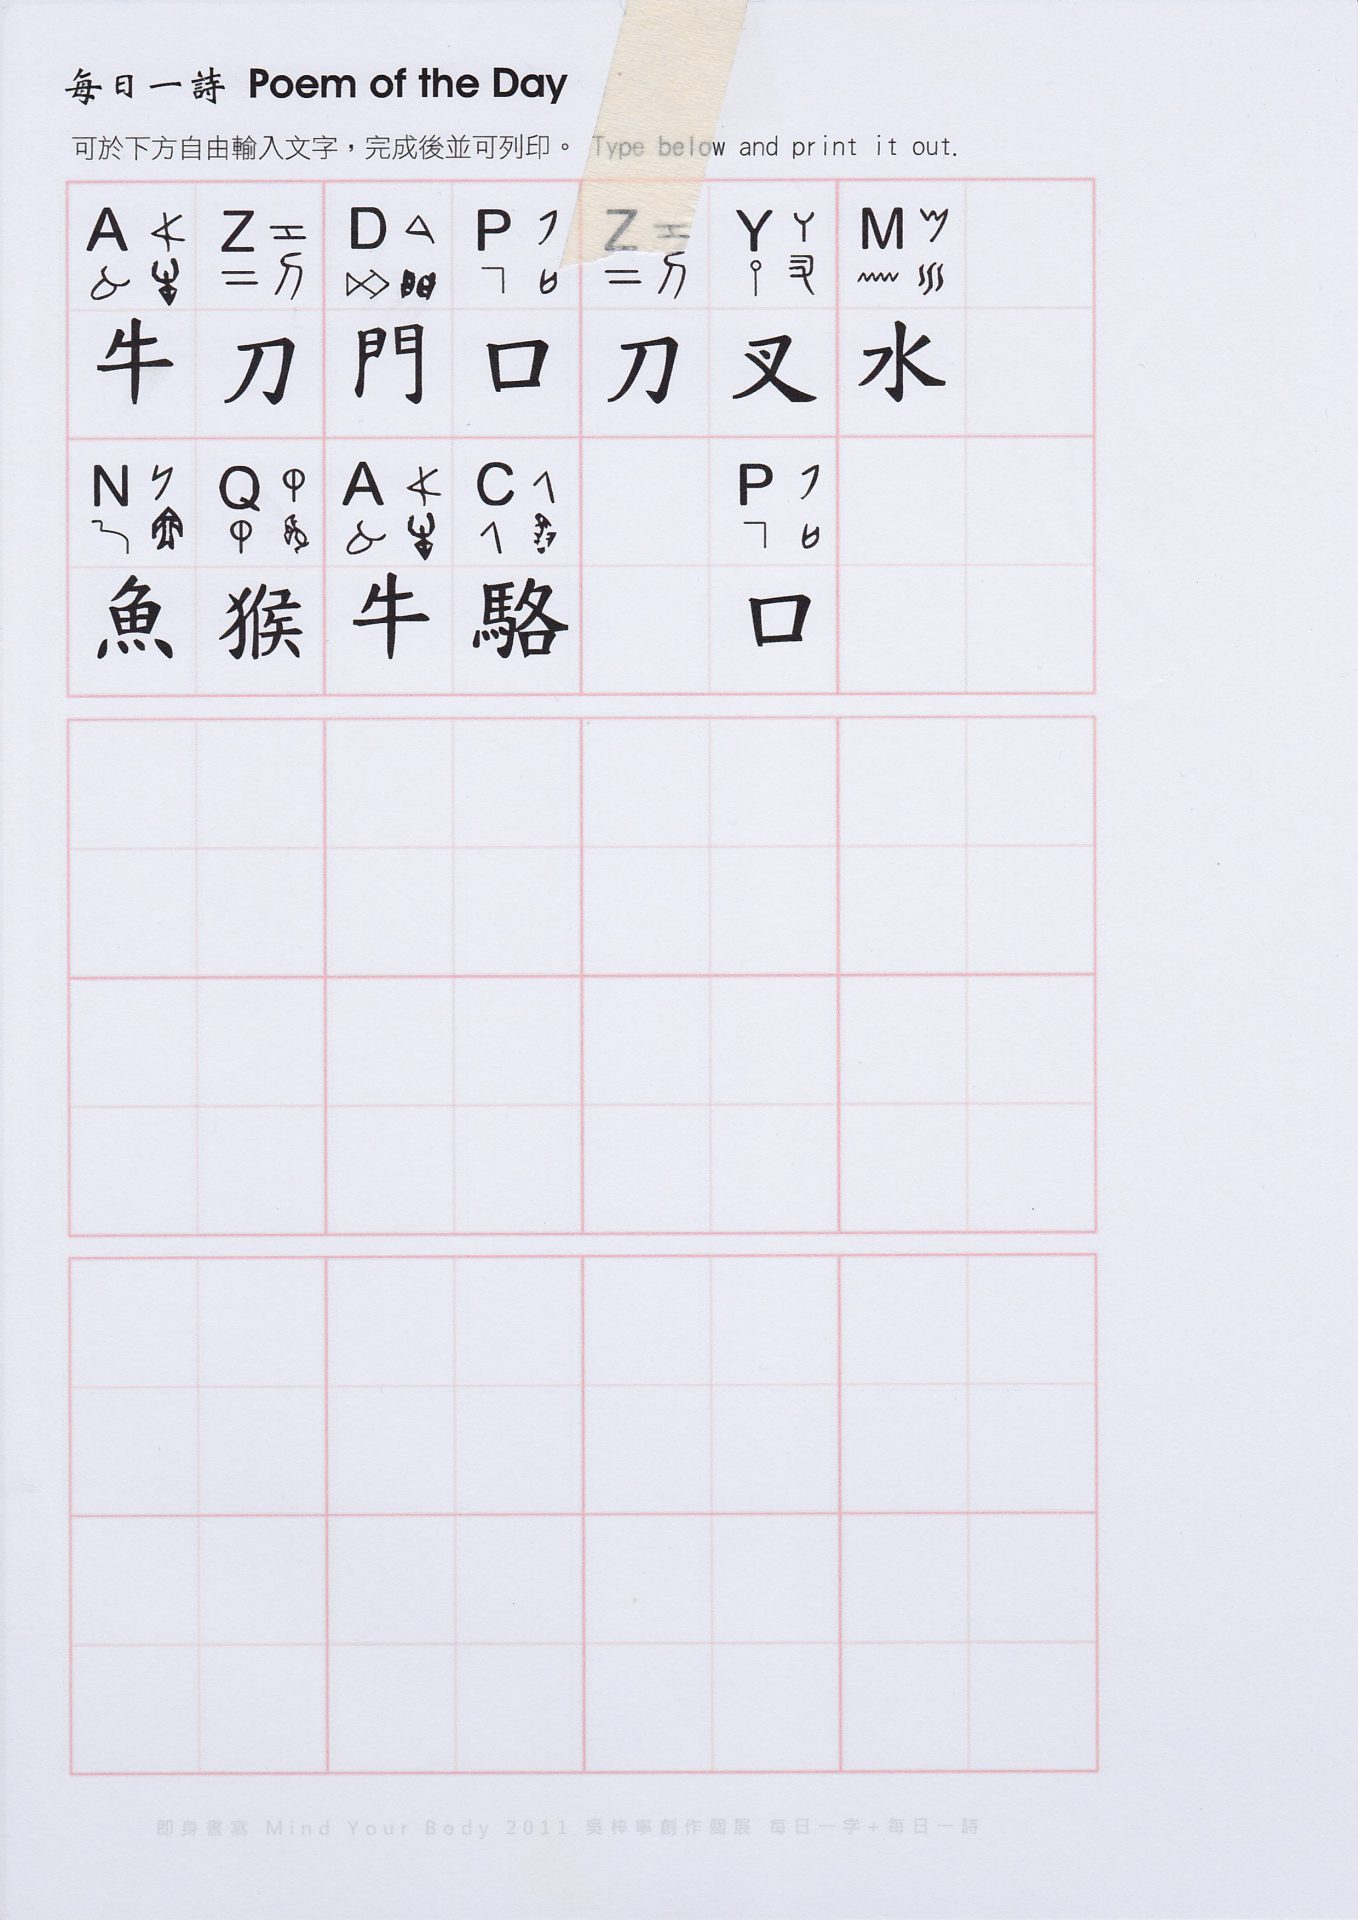 每日一詩 Poem of the Day
可於下方自由輸入文字，完成後並可列印。 Type below and print it out.
A Z D P Z Y M
牛 刀 門 口 刀 叉 水
N Q A C P
魚 猴 牛 駱 口
即身書寫 Mind Your Body 2011 吳梓寧創作個展 每日一字+每日一詩